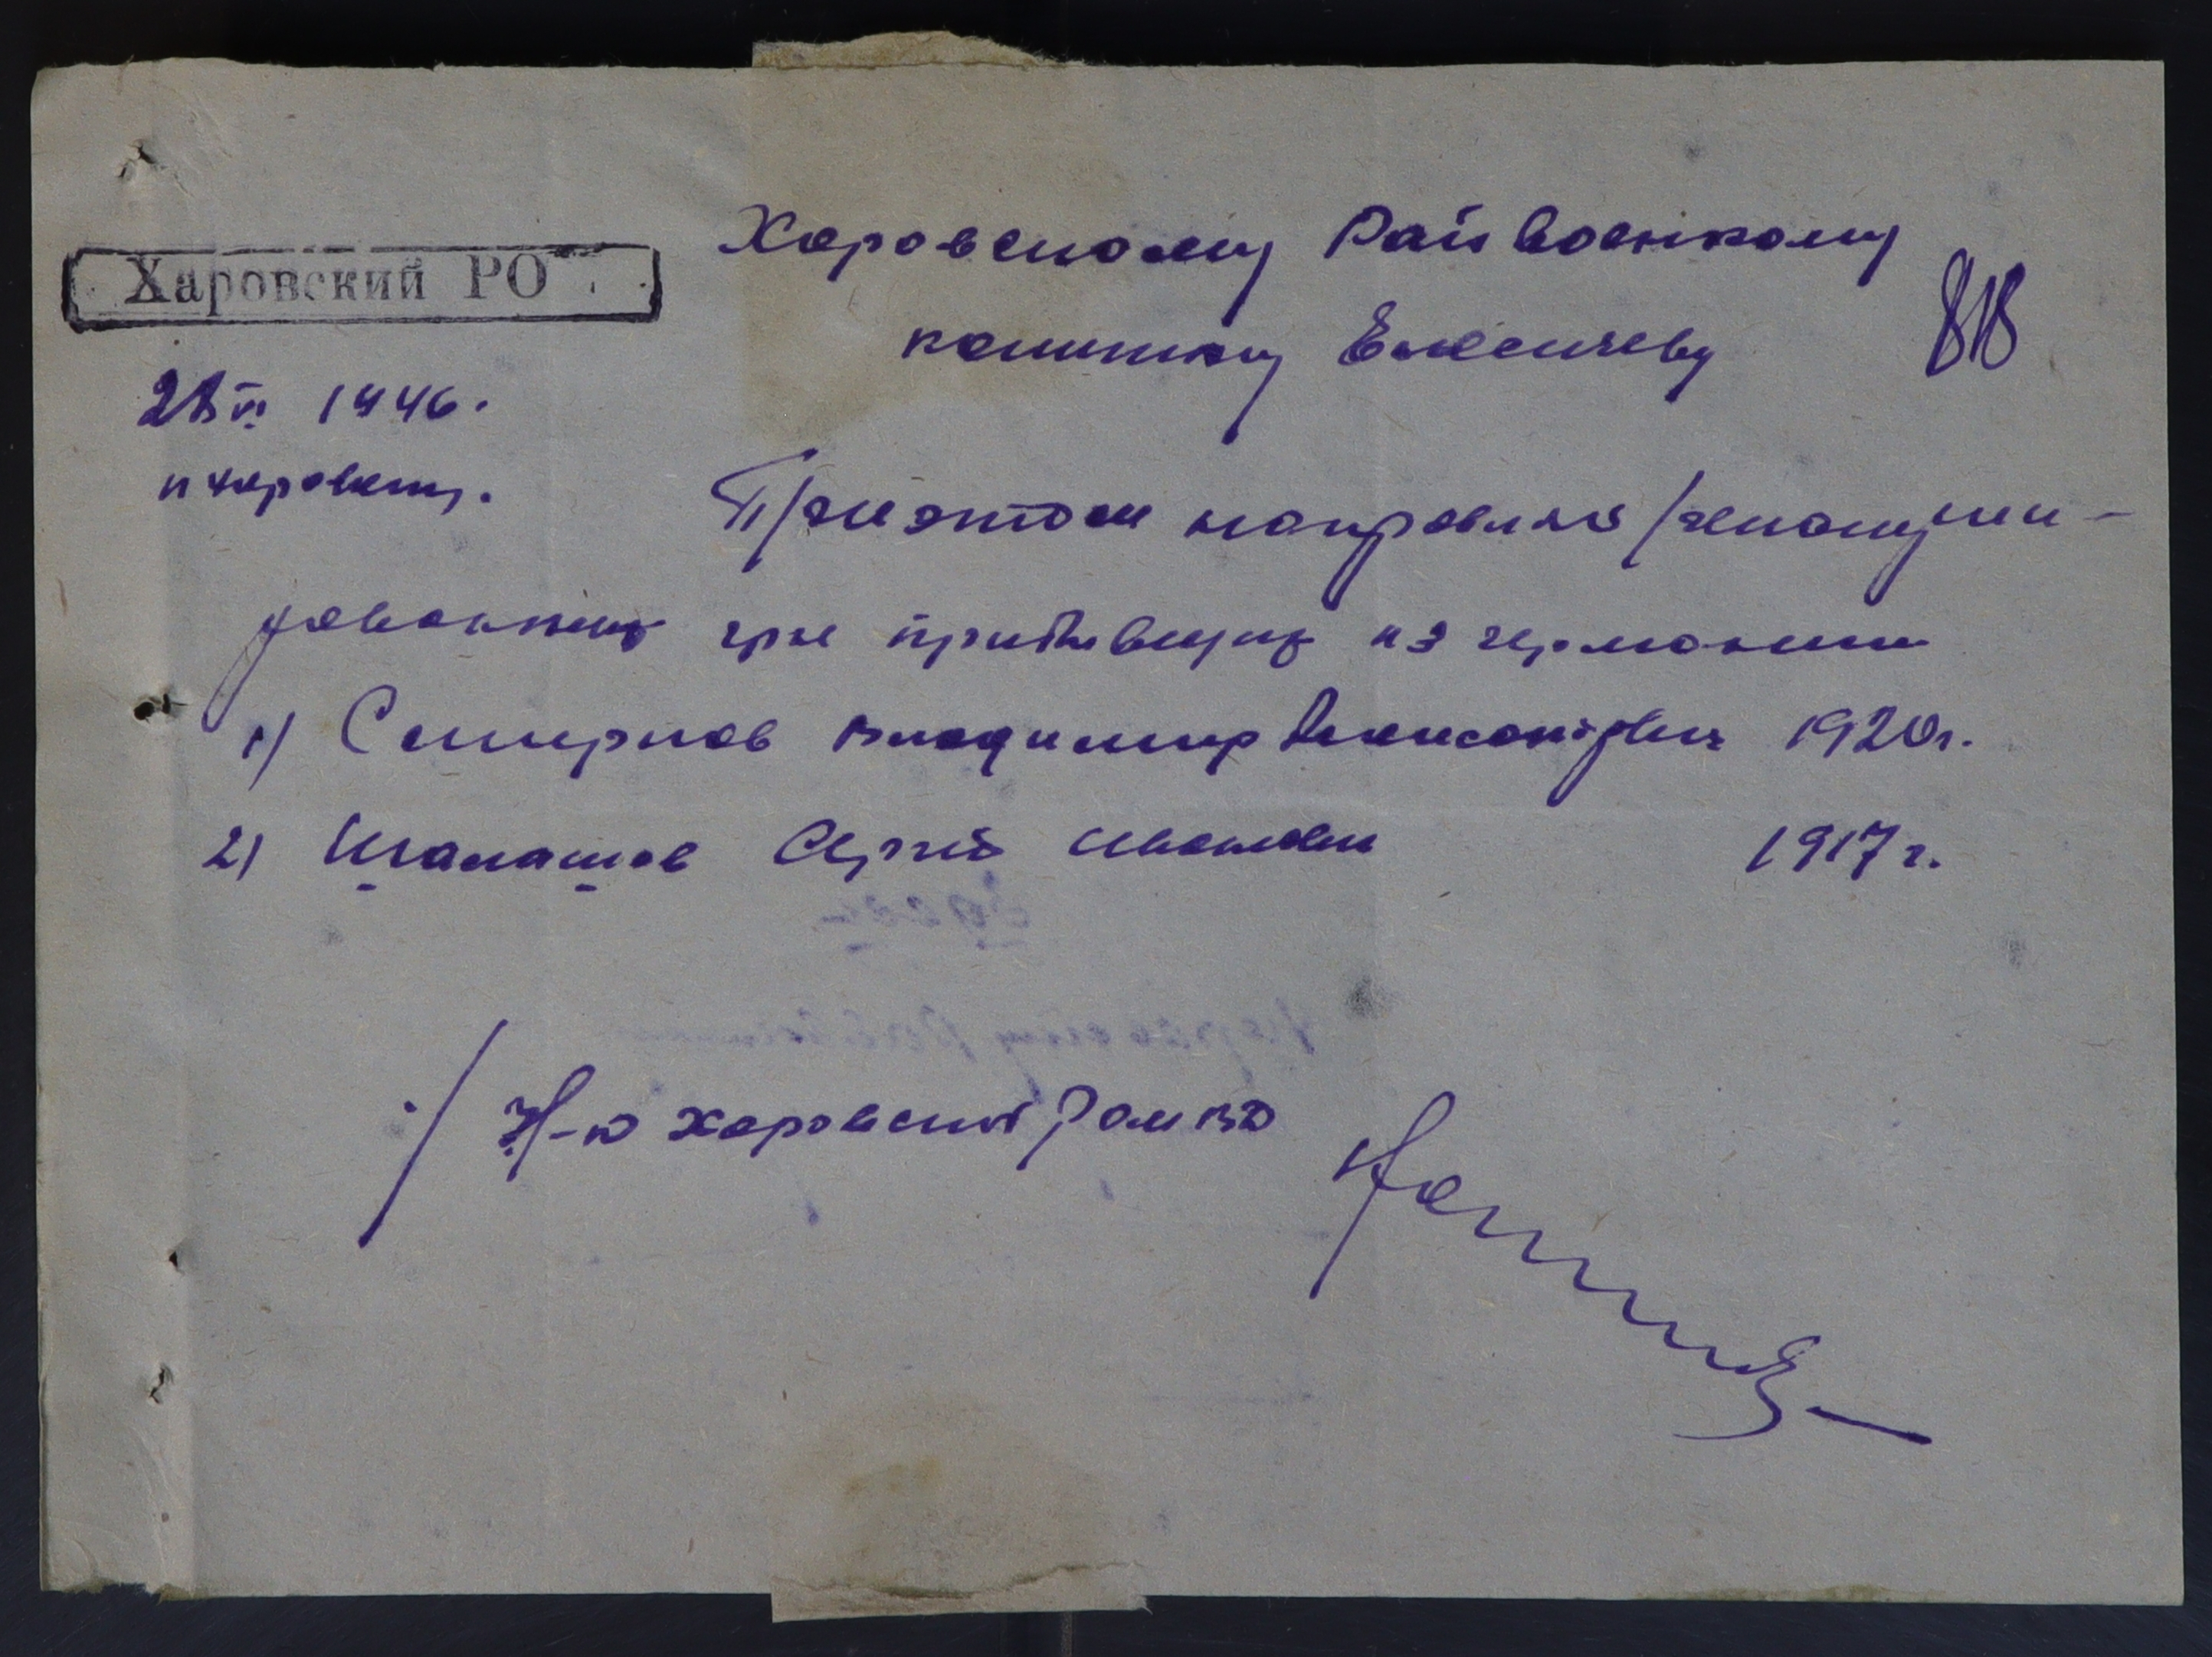 Харовский РО
Харовскому Райвоенкому
капитану
818
28 VI 1946.
п харовский.
При этом направляю репатрии-
рованных гр-н прибывших из германии
1) Смирнов Владимир Александрович 1920г.
2) Шалашов Сергей Иванович 1917 г.
Н-к Харовский РОМВД